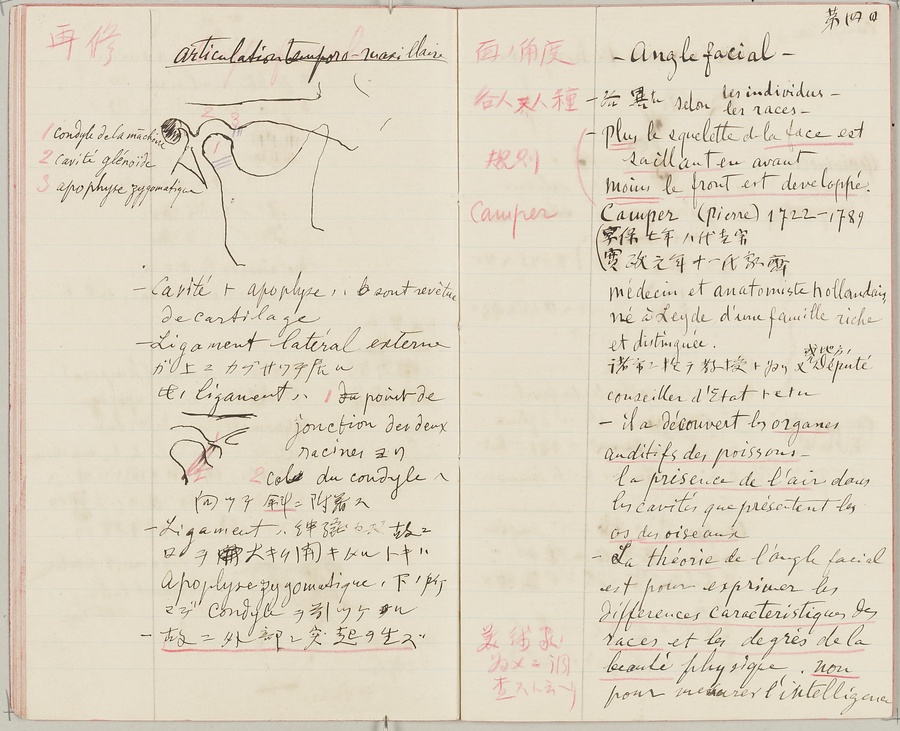 再修
articulation temporo-maxillaire
2 3
1
1 Condyle de la machire
2 Cavité glénoïde
3 apophyse zygomatique
- Cavité ト apophyse ハ sont revêtue
de cartilage
- Ligament latéral externe
ガ上ニ カブサツテ居ル
ligament ハ 1 Du point de
jonction des deux
racines ヨリ
2 Cole du condyle ヘ
向ツテ 斜ニ附着ス
- Ligament 故ニ
口ヲ大キク開キタル トキハ
Apophyse zygomatique ノ下
マデ Condyle ヲ引ツケ
- 故ニ外部ニ突起ヲ生ズ
第四回
面ノ角度
- Angle facial -
各人各人種
selon les individus -
les races -
規則
- Plus le squelette de la face est
saillant en avant
moins le front est developpé.
Camper
Camper (Pierre) 1722-1789
享保七年 八代吉宗
寛政元年 十一代家斉
médecin et anatomiste hollandais
né à Leyde d'une famille riche
et distinguée.
Député
conseiller d'Etat
- il a découvert les organes
auditifs des poissons -
la présence de l'air dans
les cavités que présentent les
os des oiseaux
- La théorie de l'angle facial
est pour exprimer les
différences caractéristiques des
races et les degrés de la
beauté physique. non
pour mesurer l'intelligence
美術家ノ
為メニ調
査スト云フ